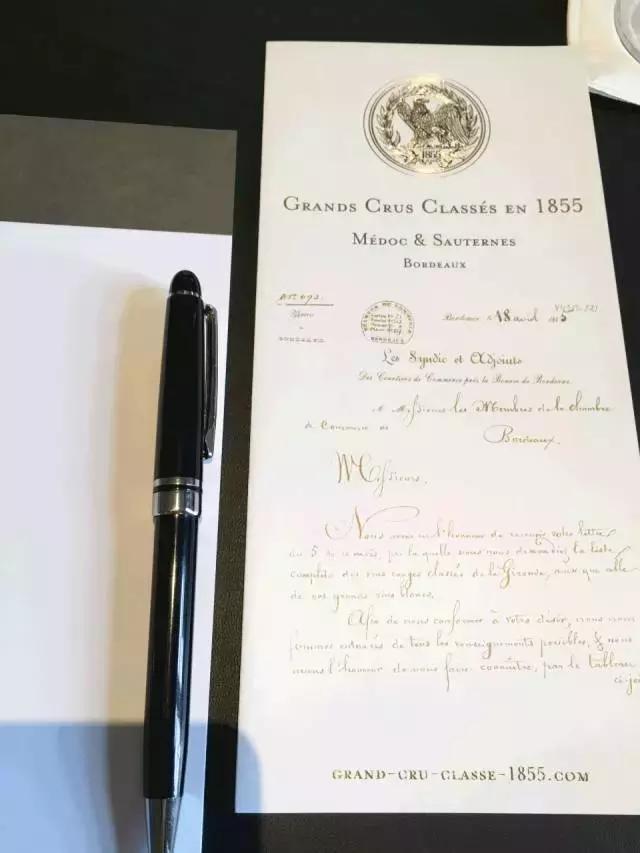 1855
GRANDS CRUS CLASSÉS EN 1855
MÉDOC & SAUTERNES
BORDEAUX
Nº 692.
BORDEAUX.
Bordeaux 18 avril
Les Syndic et Adjoints
Des Courtiers de Commerce près la Bourse de Bordeaux
A Messieurs les Membres de la Chambre
de Commerce de Bordeaux.
Messieurs,
Nous avons eu l'honneur de recevoir votre lettre
du 5 de ce mois, par laquelle vous nous demandiez la liste
complète des vins rouges classés de la Gironde, ainsi que celle
de nos grands vins blancs.
Afin de nous conformer à votre désir, nous nous
sommes entourés de tous les renseignements possibles, & nous
avons l'honneur de vous faire connaître, par le tableau
ci-joi
GRAND-CRU-CLASSE-1855.COM